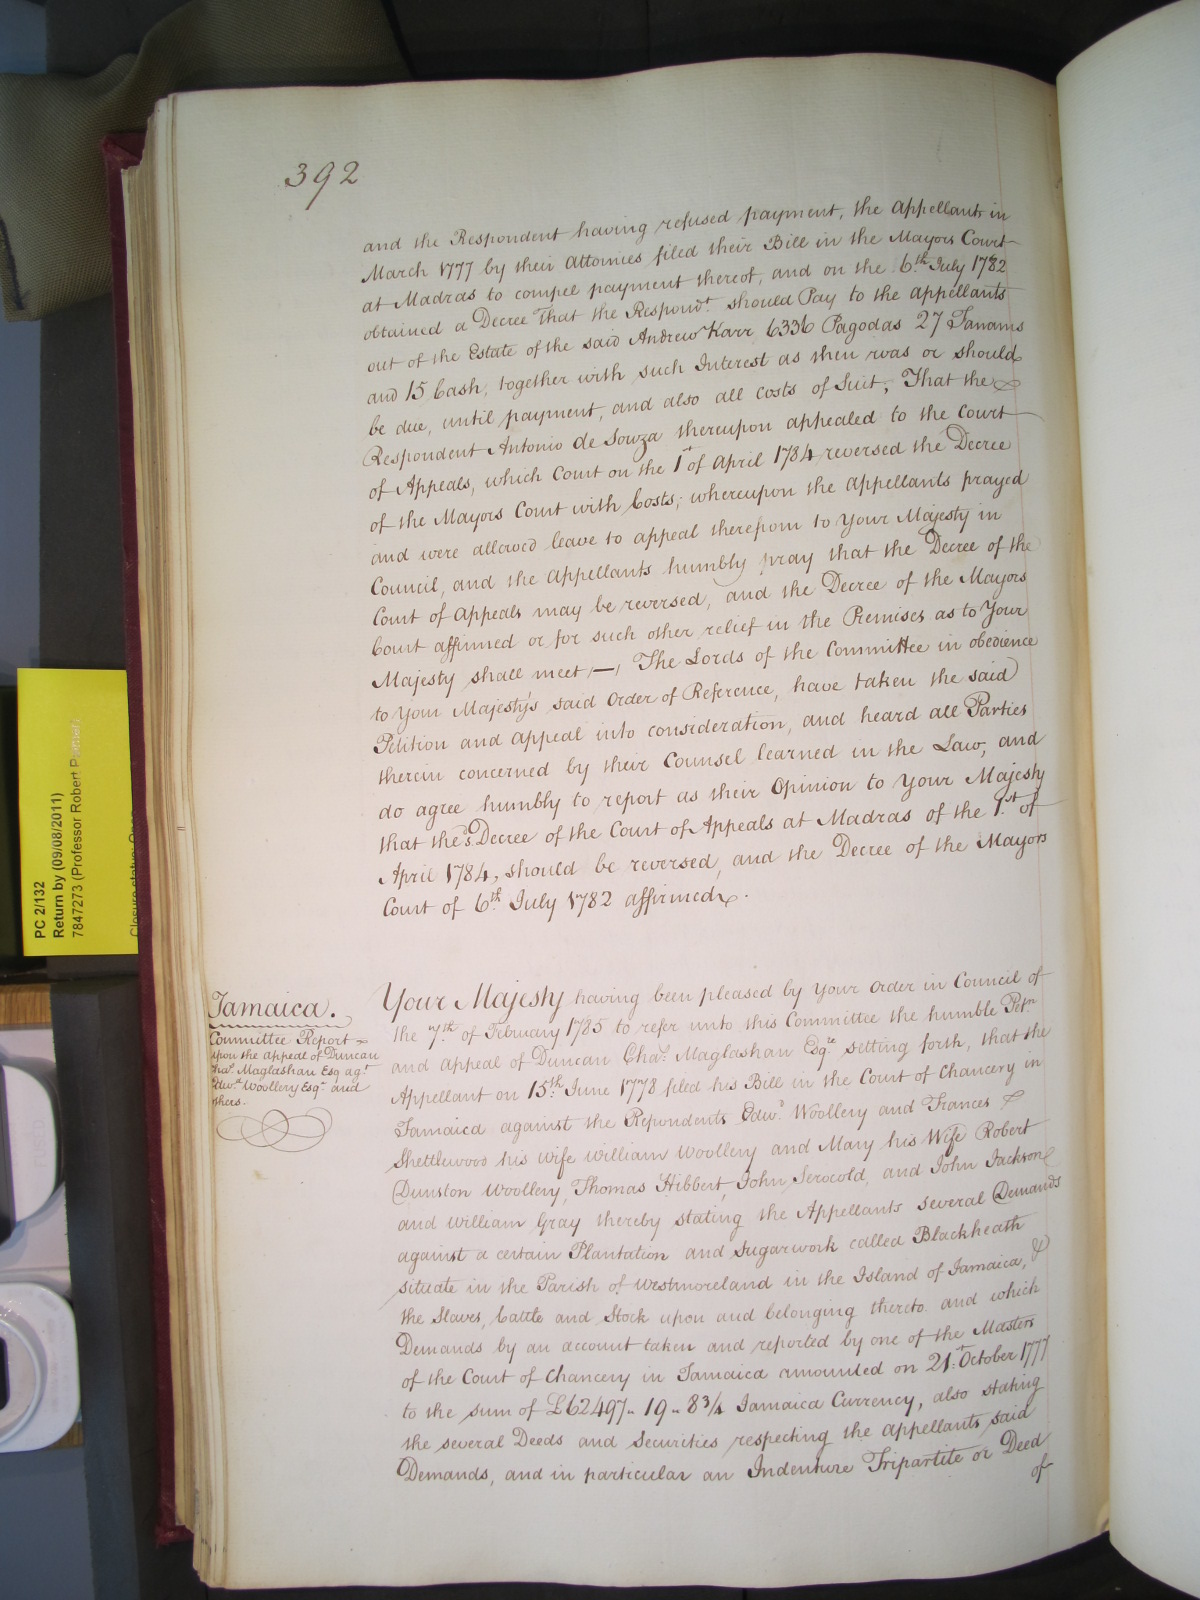 392
and the Respondent having refused payment, the Appellants in
March 1777 by their Attornies filed their Bill in the Mayors Court
at Madras to compel payment thereof, and on the 6.th July 1782
obtained a Decree That the Respondt. should Pay to the appellants
out of the Estate of the said Andrew Karr 6336 Pagodas 27 Fanams
and 15 Cash, together with such Interest as then was or should
be due, until payment, and also all Costs of Suit; That the
Respondent Antonio de Souza thereupon appealed to the Court
of Appeals, which Court on the 1st of April 1784 reversed the Decree
of the Mayors Court with Costs; whereupon the Appellants prayed
and were allowed leave to appeal therefrom to Your Majesty in
Council, and the Appellants humbly pray that the Decree of the
Court of Appeals may be reversed, and the Decree of the Mayors
Court affirmed or for such other relief in the Premises as to Your
Majesty shall meet,—, The Lords of the Committee in obedience
to Your Majesty's said Order of Reference, have taken the said
Petition and Appeal into consideration, and heard all Parties
therein concerned by their Counsel learned in the Law, and
do agree humbly to report as their Opinion to Your Majesty
that the sd. Decree of the Court of Appeals at Madras of the 1.st of
April 1784, should be reversed, and the Decree of the Mayors
Court of 6.th July 1782 affirmed.
Jamaica.
Committee Report
upon the appeal of Duncan
Chas. Maglashan Esq agt.
Edwd. Woollery Esqr. and
others.
Your Majesty having been pleased by Your Order in Council of
the 7.th of February 1785 to refer unto this Committee the humble Petn.
and appeal of Duncan Chas. Maglashan Esqre. setting forth, that the
Appellant on 15.th June 1778 filed his Bill in the Court of Chancery in
Jamaica against the Repondents Edwd. Woollery and Frances
Shettlewood his wife William Woollery and Mary his Wife Robert
Dunston Woollery, Thomas Hibbert, John Serocold, and John Jackson
and William Gray thereby stating the Appellants several Demands
against a certain Plantation and Sugarwork called Blackheath
situate in the Parish of Westmoreland in the Island of Jamaica, &
the Slaves, Cattle and Stock upon and belonging thereto and which
Demands by an account taken and reported by one of the Masters
of the Court of Chancery in Jamaica amounted on 21.st October 1777
to the sum of £62497.. 19.. 8 3/4 Jamaica Currency, also stating
the several Deeds and Securities respecting the appellants said
Demands, and in particular an Indenture Tripartite or Deed
of
PC 2/132
Return by (09/08/2011)
7847273 (Professor Robert
Closure status: